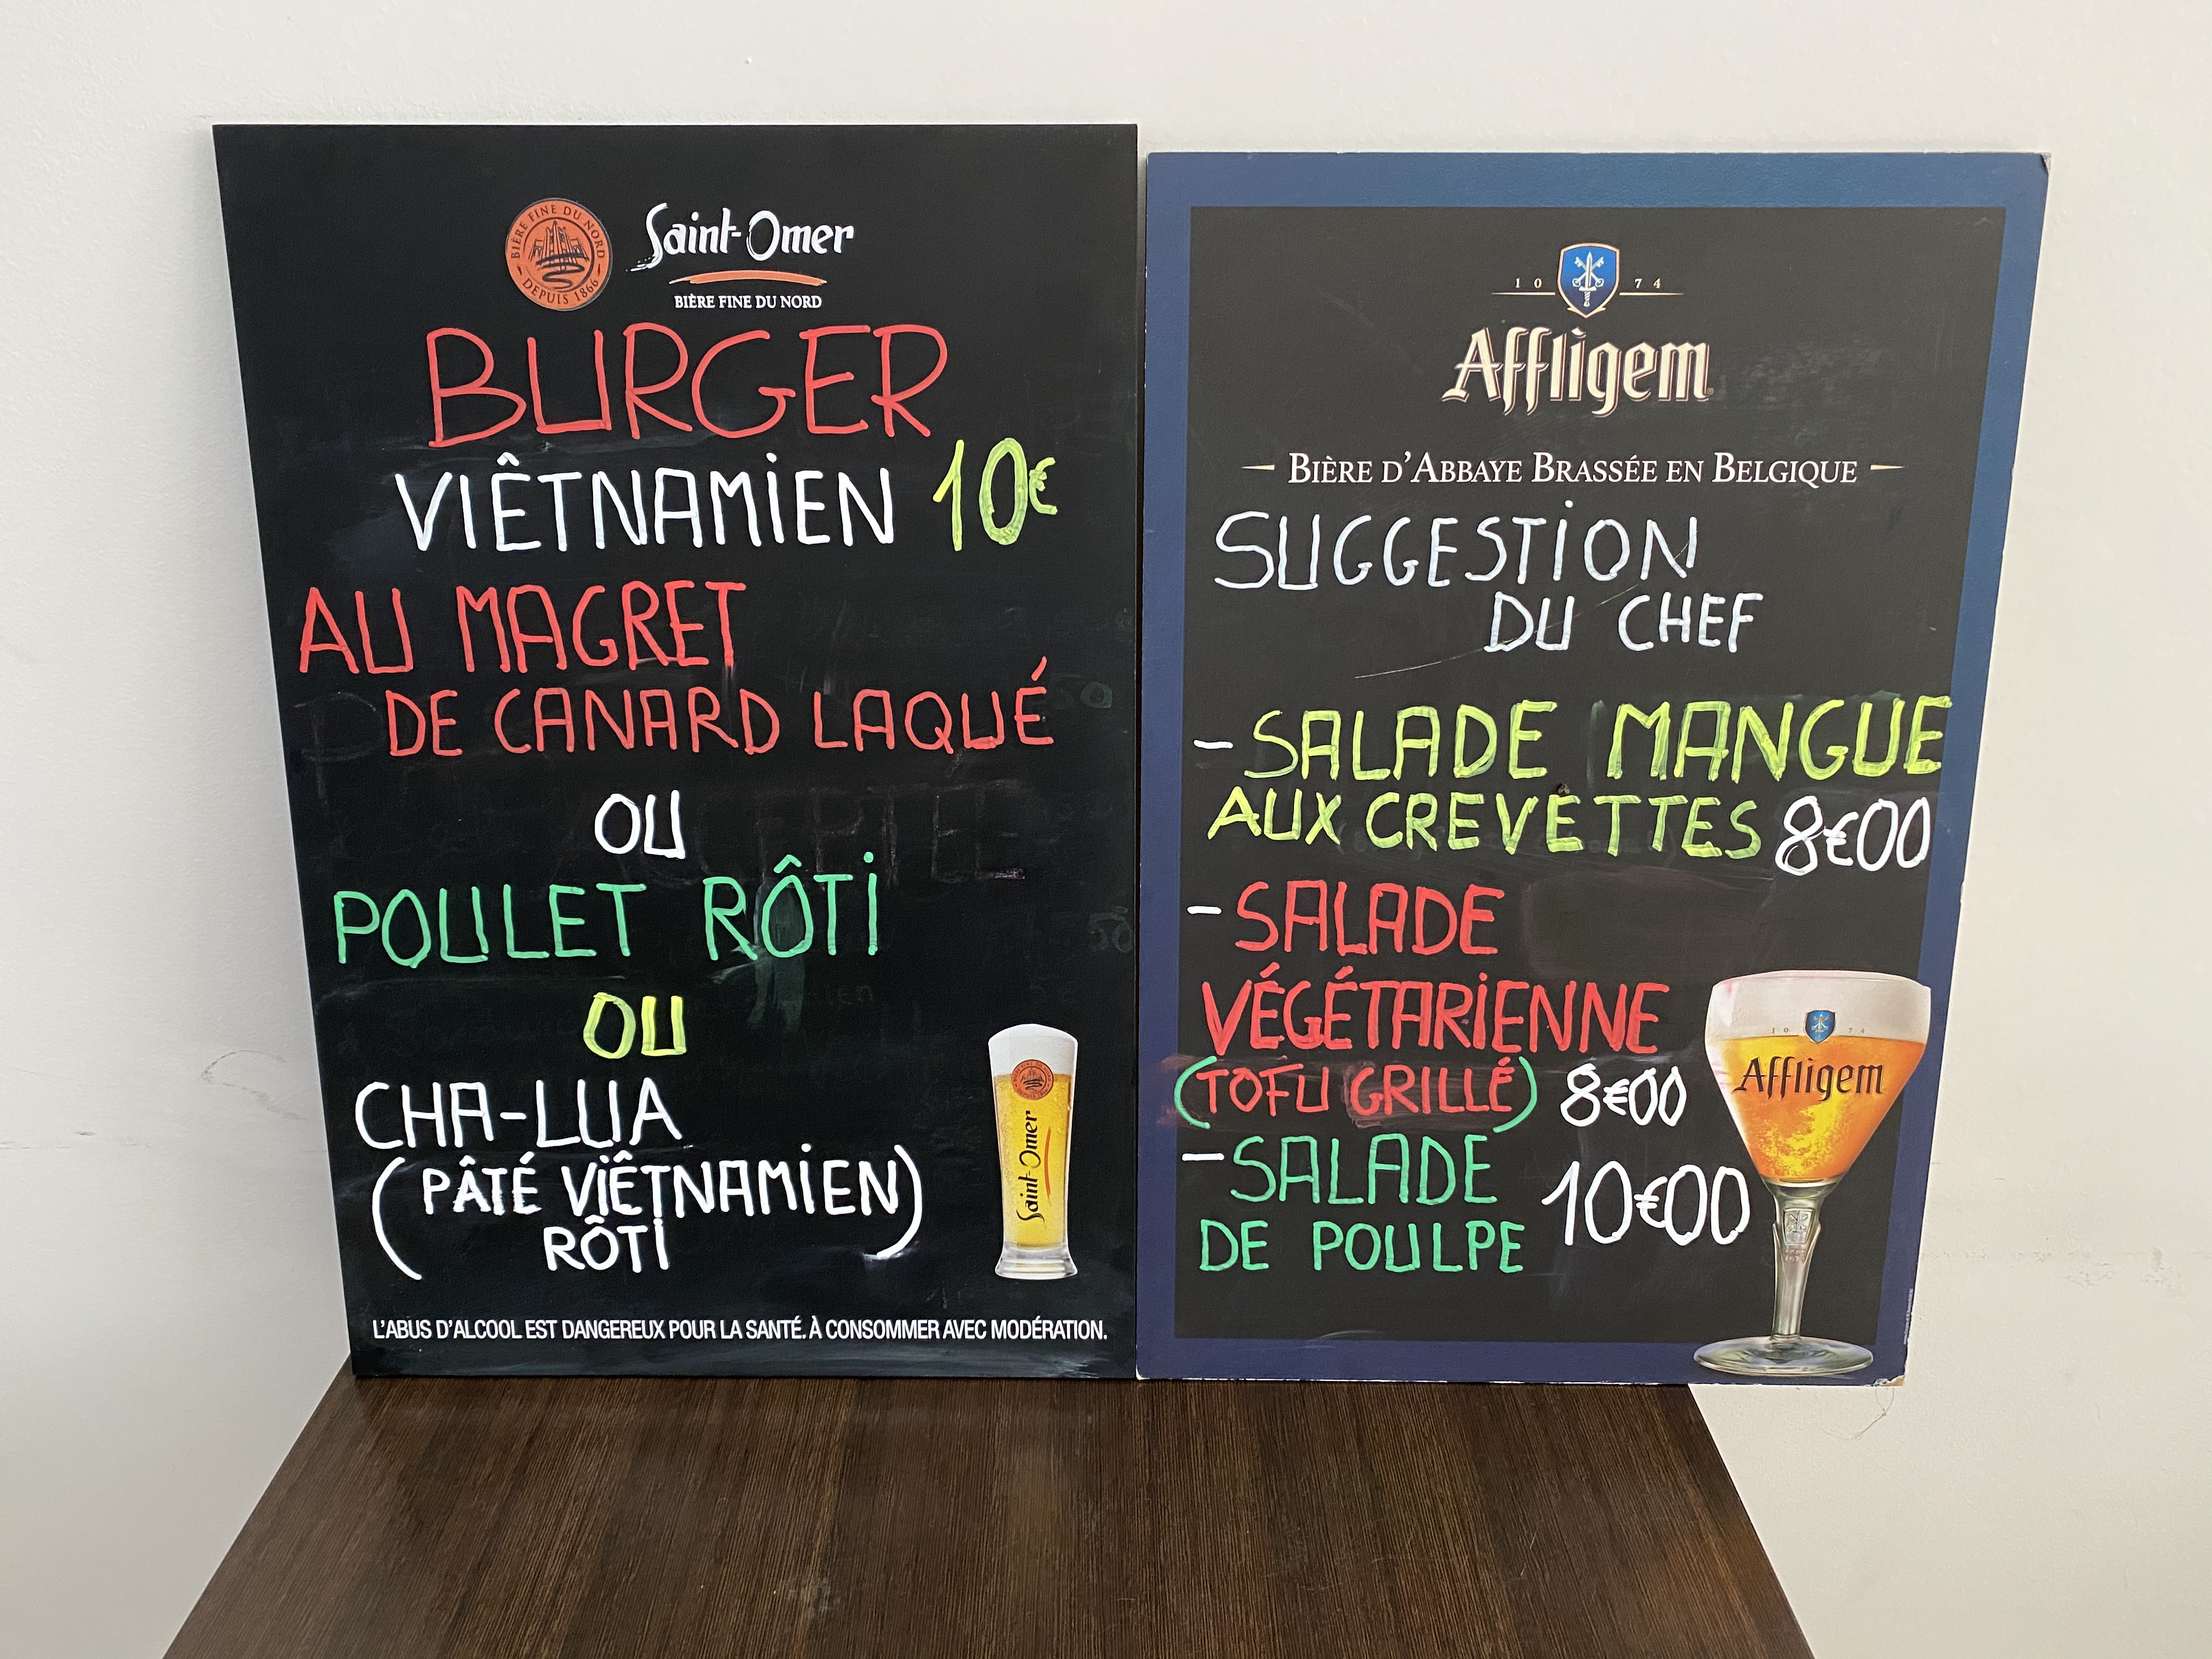 BIÈRE FINE DU NORD
DEPUIS 1866
Saint-Omer
BIÈRE FINE DU NORD
BURGER
VIÊTNAMIEN 10€
AU MAGRET
DE CANARD LAQUÉ
OU
POULET RÔTI
OU
CHA-LUA
(PÂTÉ VIÊTNAMIEN)
RÔTI
Saint-Omer
L'ABUS D'ALCOOL EST DANGEREUX POUR LA SANTÉ. À CONSOMMER AVEC MODÉRATION.
10 74
Affligem
BIÈRE D'ABBAYE BRASSÉE EN BELGIQUE
SUGGESTION
DU CHEF
- SALADE MANGUE
AUX CREVETTES 8€00
- SALADE
VÉGÉTARIENNE
(TOFU GRILLÉ) 8€00
- SALADE
DE POULPE 10€00
10 74
Affligem